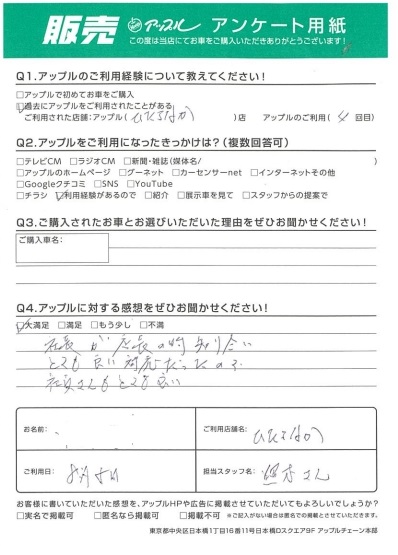 販売 アップル アンケート用紙
この度は当店にてお車をご購入いただきありがとうございます!
Q1.アップルのご利用経験について教えてください!
□アップルで初めてお車をご購入
☑過去にアップルをご利用されたことがある
ご利用された店舗:アップル( ひたちなか )店 アップルのご利用( 4 回目)
Q2.アップルをご利用になったきっかけは?(複数回答可)
□テレビCM □ラジオCM □新聞・雑誌(媒体名/ )
□アップルのホームページ □グーネット □カーセンサーnet □インターネットその他
□Googleクチコミ □SNS □YouTube
□チラシ ☑利用経験があるので □紹介 □展示車を見て □スタッフからの提案で
Q3.ご購入されたお車とお選びいただいた理由をぜひお聞かせください!
ご購入車名:
Q4.アップルに対する感想をぜひお聞かせください!
☑大満足 □満足 □もう少し □不満
社長が店長の時知り合い
とても良い対応だったので
社員さんもとても良い
お名前: ご利用店舗名: ひたちなか
ご利用日: 8月5日 担当スタッフ名: さん
お客様に書いていただいた感想を、アップルHPや広告に掲載させていただいてもよろしいでしょうか?
□実名で掲載可 □匿名なら掲載可 □掲載不可 ※ご記入がない場合は匿名での掲載とさせていただきます。
東京都中央区日本橋1丁目16番11号日本橋Dスクエア9F アップルチェーン本部